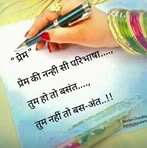 "प्रेम"
प्रेम की नन्ही सी परिभाषा....,
तुम हो तो बसंत....,
तुम नहीं तो बस-अंत..!!